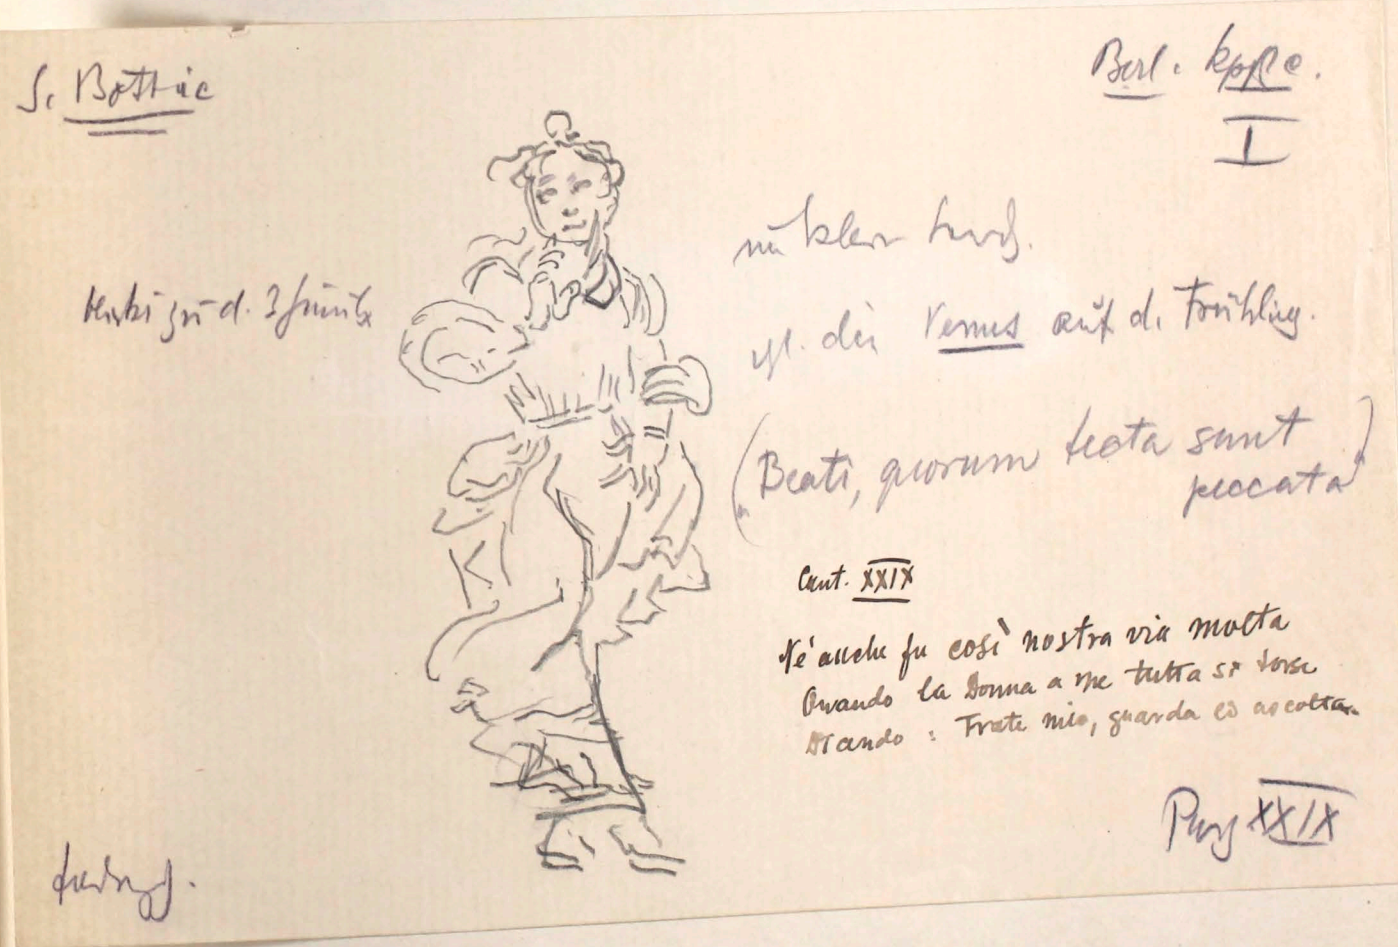 S. Bottic
Berl. Kpfc.
I
klar
zu d. 3
vgl. die Venus auf d. Frühling.
(Beati, quorum tecta sunt
peccata)
Cant. XXIX
Né anche fu così nostra via molta
Quando la Donna a me tutta si torse
Dicendo: Frate mio, guarda ed ascolta.
Purg XXIX